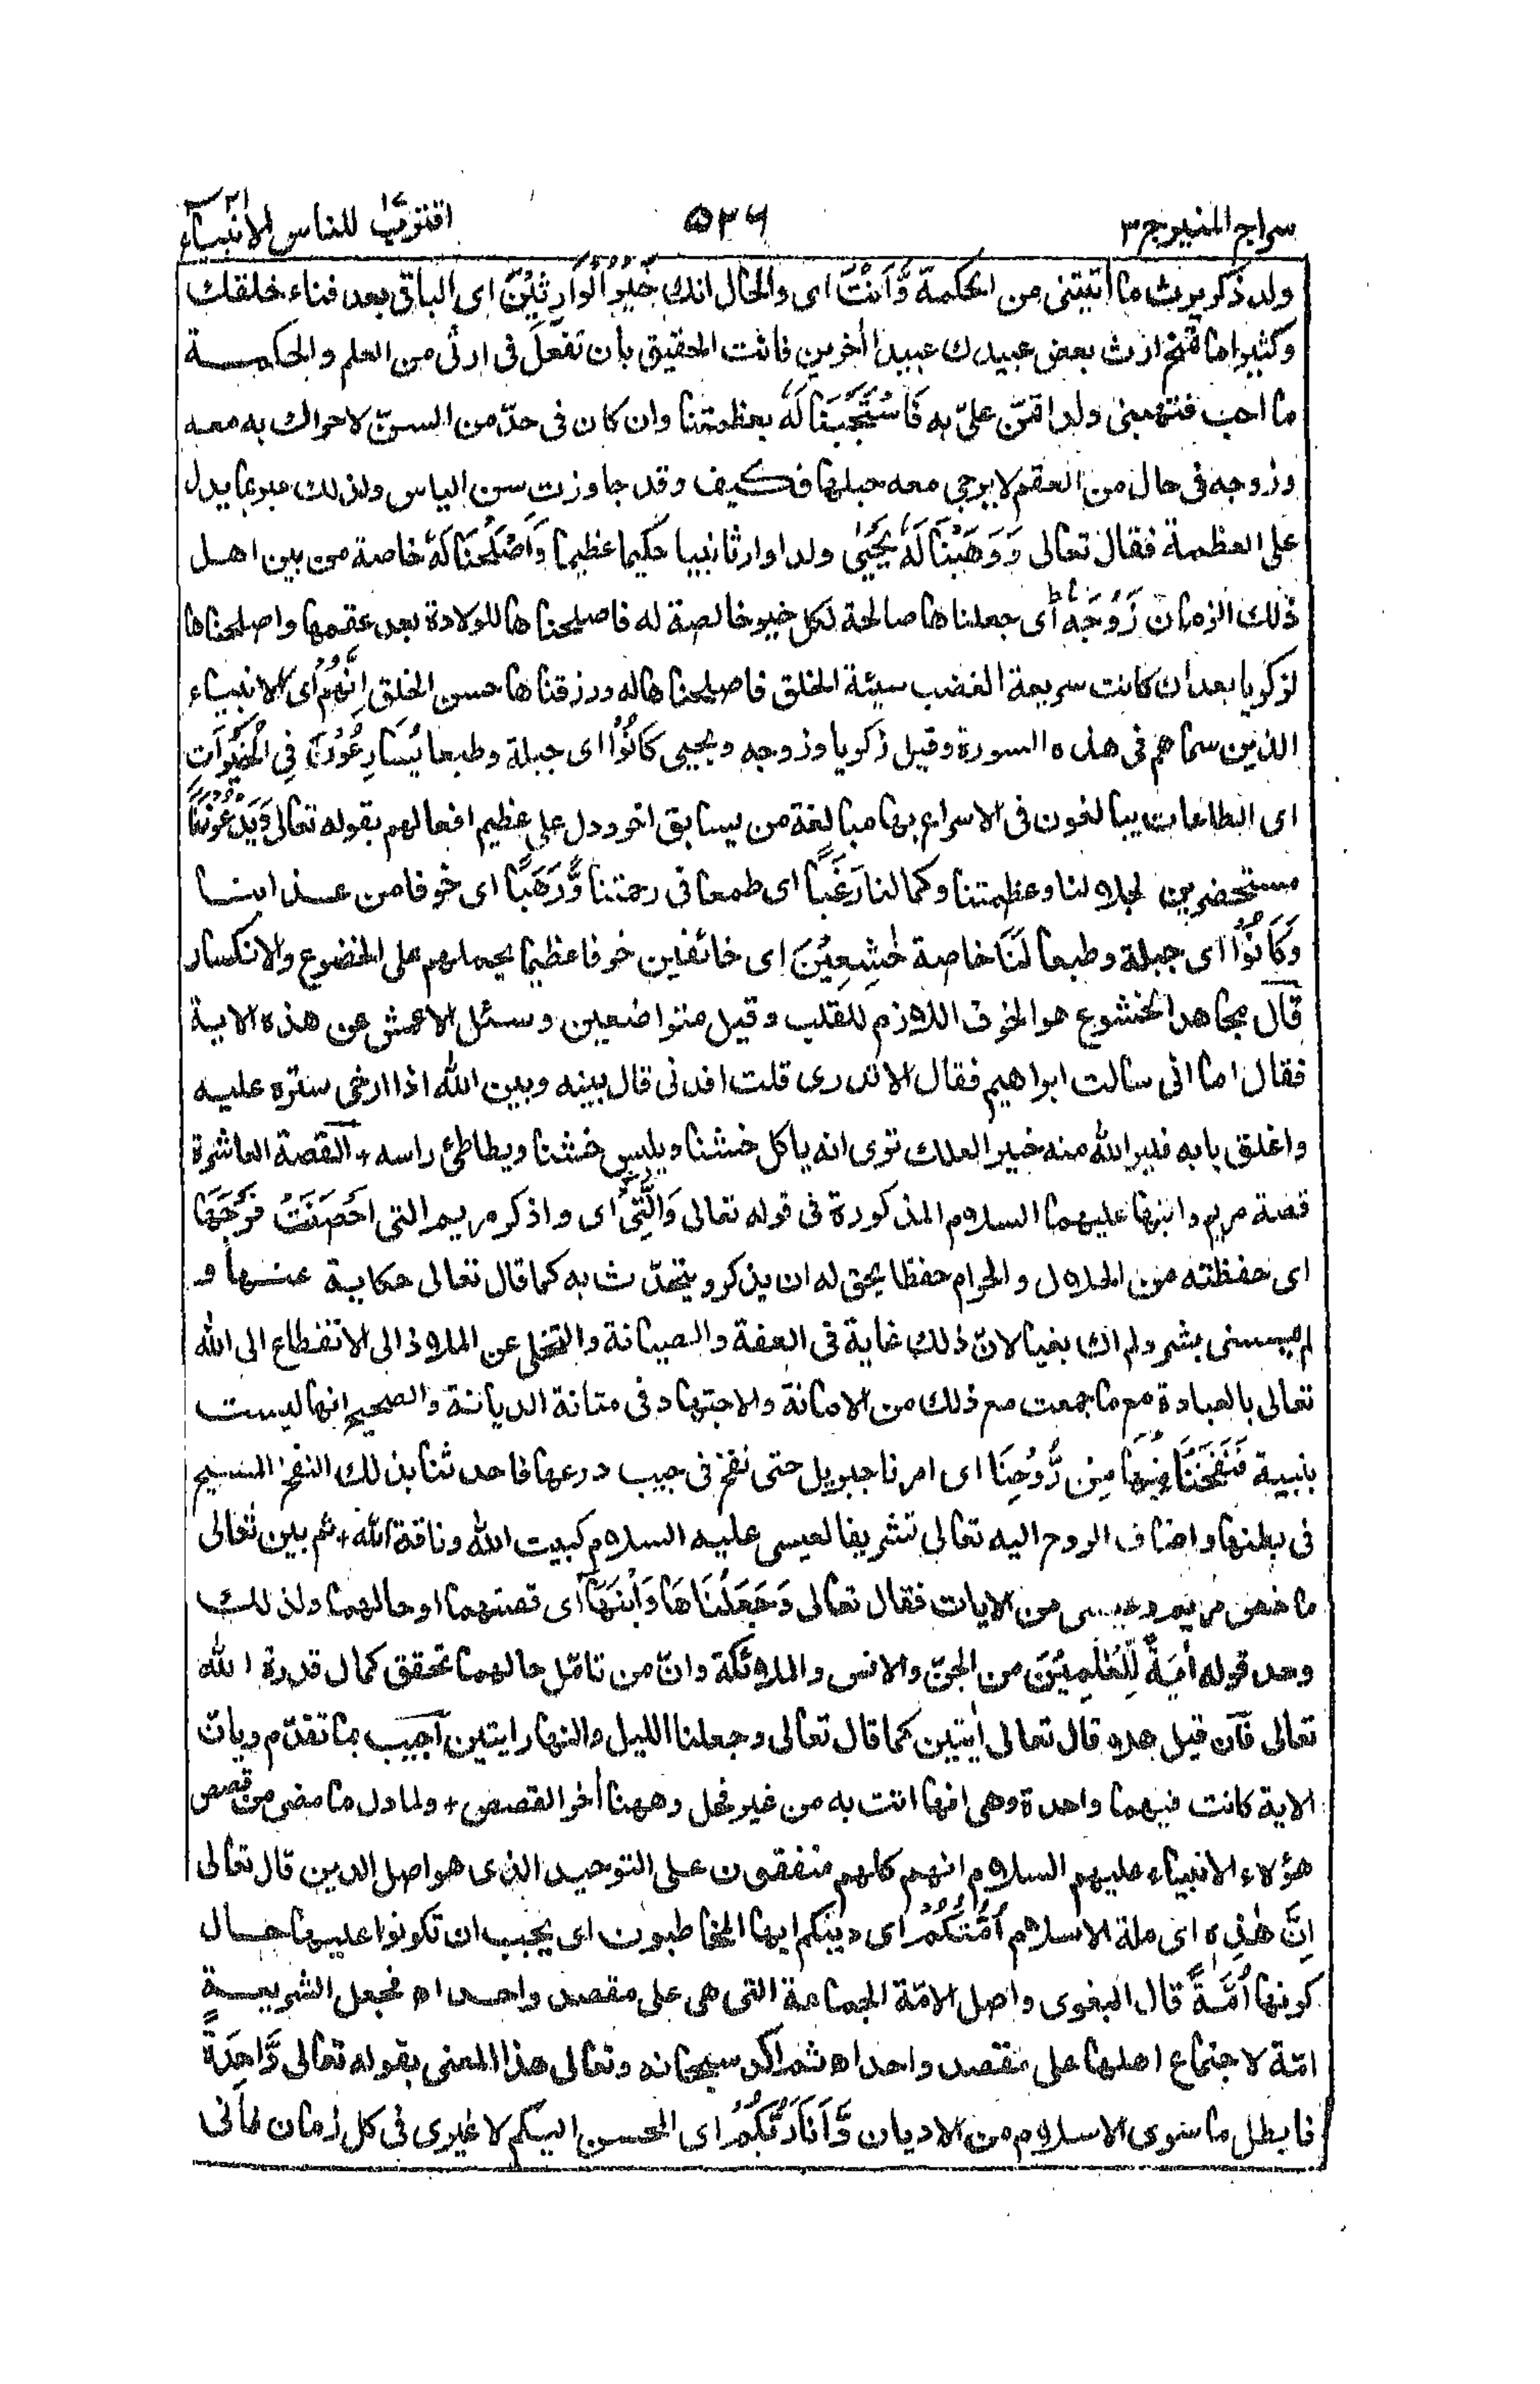 سراج المنير ج ٣ ٥٣٦ اقترب للناس ١٧ الانبياء ٢١
ولد ذكر يرث ما اٰتيتنى من الحكمة وَّاَنْتَ اى والحال انك خَيْرُ الْوَارِثِيْنَ اى الباقى بعد فناء خلقك
وكثيرا ما تمنح ارث بعض عبيدك عبيدا اٰخرين فانت الحقيق بان تفعل فى ارثى من العلم والحكمة
ما احب فتهبنى ولدا تمنّ علىّ به فَاسْتَجَبْنَا لَهٗ بعظمتنا وان كان فى حدّ من السنّ لا حراك به معه
وزوجه فى حال من العقم لا يرجى معه حبلها فكيف وقد جاوزت سن الياس ولذلك عبر بما يدل
على العظمة فقال تعالى وَوَهَبْنَا لَهٗ يَحْيٰى ولدا وارثا نبيا حكيما عظيما وَاَصْلَحْنَا لَهٗ خاصة من بين اهل
ذلك الزمان زَوْجَهٗ اى جعلناها صالحة لكل خير خالصة له فاصلحناها للولادة بعد عقمها واصلحناها
لزكريا بعد ان كانت سريعة الغضب سيئة الخلق فاصلحناها له ورزقناها حسن الخلق اِنَّهُمْ اى الانبياء
الذين سماهم فى هذه السورة وقيل زكريا وزوجه ويحيى كَانُوْا اى جبلة وطبعا يُسَارِعُوْنَ فِى الْخَيْرَاتِ
اى الطاعات يبالغون فى الاسراع بها مبالغة من يسابق اخر ودل على عظيم افعالهم بقوله تعالى وَيَدْعُوْنَنَا
مستحضرين لجلالنا وعظمتنا وكمالنا رَغَبًا اى طمعا فى رحمتنا وَّرَهَبًا اى خوفا من عذابنا
وَكَانُوْا اى جبلة وطبعا لَنَا خاصة خٰشِعِيْنَ اى خائفين خوفا عظيما يحملهم على الخضوع والانكسار
قال مجاهد الخشوع هو الخوف اللازم للقلب وقيل متواضعين وسئل الاعمش عن هذه الاية
فقال اما انى سالت ابراهيم فقال الا تدرى قلت افدنى قال بينه وبين الله اذا ارخى ستره عليه
واغلق بابه فلير الله منه خيرا لعلك ترى انه ياكل خشنا ويلبس خشنا ويطاطئ راسه + القصة العاشرة
قصة مريم وابنها عليهما السلام المذكورة فى قوله تعالى وَالَّتِىْ اى واذكر مريم التى اَحْصَنَتْ فَرْجَهَا
اى حفظته من الحلال والحرام حفظا يحق له ان يذكر ويتحدّث به كما قال تعالى حكاية عنها و
لم يمسسنى بشر ولم اك بغيا لانّ ذلك غاية فى العفة والصيانة والتخلى عن الملاذ الى الانقطاع الى الله
تعالى بالعبادة مع ما جمعت مع ذلك من الامانة والاجتهاد فى متانة الديانة والصحيح انها ليست
بنبية فَنَفَخْنَا فِيْهَا مِنْ رُّوْحِنَا اى امرنا جبريل حتى نفخ فى جيب درعها فاحدثنا بذلك النفخ المسيح
فى بطنها واضاف الروح اليه تعالى تشريفا لعيسى عليه السلام كبيت الله وناقة الله + ثم بين تعالى
ما خص مريم وعيسى من الايات فقال تعالى وَجَعَلْنَاهَا وَابْنَهَا اى قصتهما او حالهما ولذلك
وحد قوله اٰيَةً لِّلْعٰلَمِيْنَ من الجنّ والانس والملائكة وانّ من تامّل حالهما تحقق كمال قدرة الله
تعالى فان قيل هلا قال تعالى اٰيتين كما قال تعالى وجعلنا الليل والنهار ايتين اجيب بما تقدّم وبانّ
الاية كانت فيهما واحدة وهى انها اتت به من غير فحل وههنا اٰخر القصص + ولما دل ما مضى من قصص
هؤلاء الانبياء عليهم السلام انهم كلهم متفقون على التوحيد الذى هو اصل الدين قال تعالى
اِنَّ هٰذِهٖ اى ملة الاسلام اُمَّتُكُمْ اى دينكم ايها المخاطبون اى يجب ان تكونوا عليها حال
كونها اُمَّةً قال البغوى واصل الامّة الجماعة التى هى على مقصد واحد اه فجعل الشريعة
امّة لاجتماع اهلها على مقصد واحد اه ثم اكد سبحانه وتعالى هذا المعنى بقوله تعالى وَّاحِدَةً
فابطل ما سوى الاسلام من الاديان وَّاَنَا رَبُّكُمْ اى المحسن اليكم لا غيرى فى كل زمان فانى